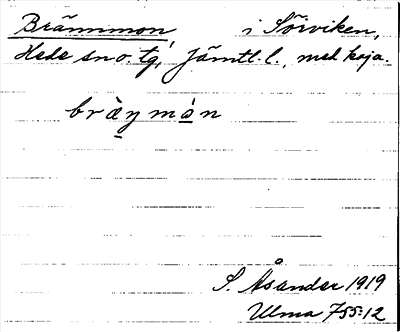 Brännmon i Sörviken,
Hede sn o. tg, Jämtl. l., med koja.
brà̤ymòn
S. Åsander 1919
Ulma 755:12